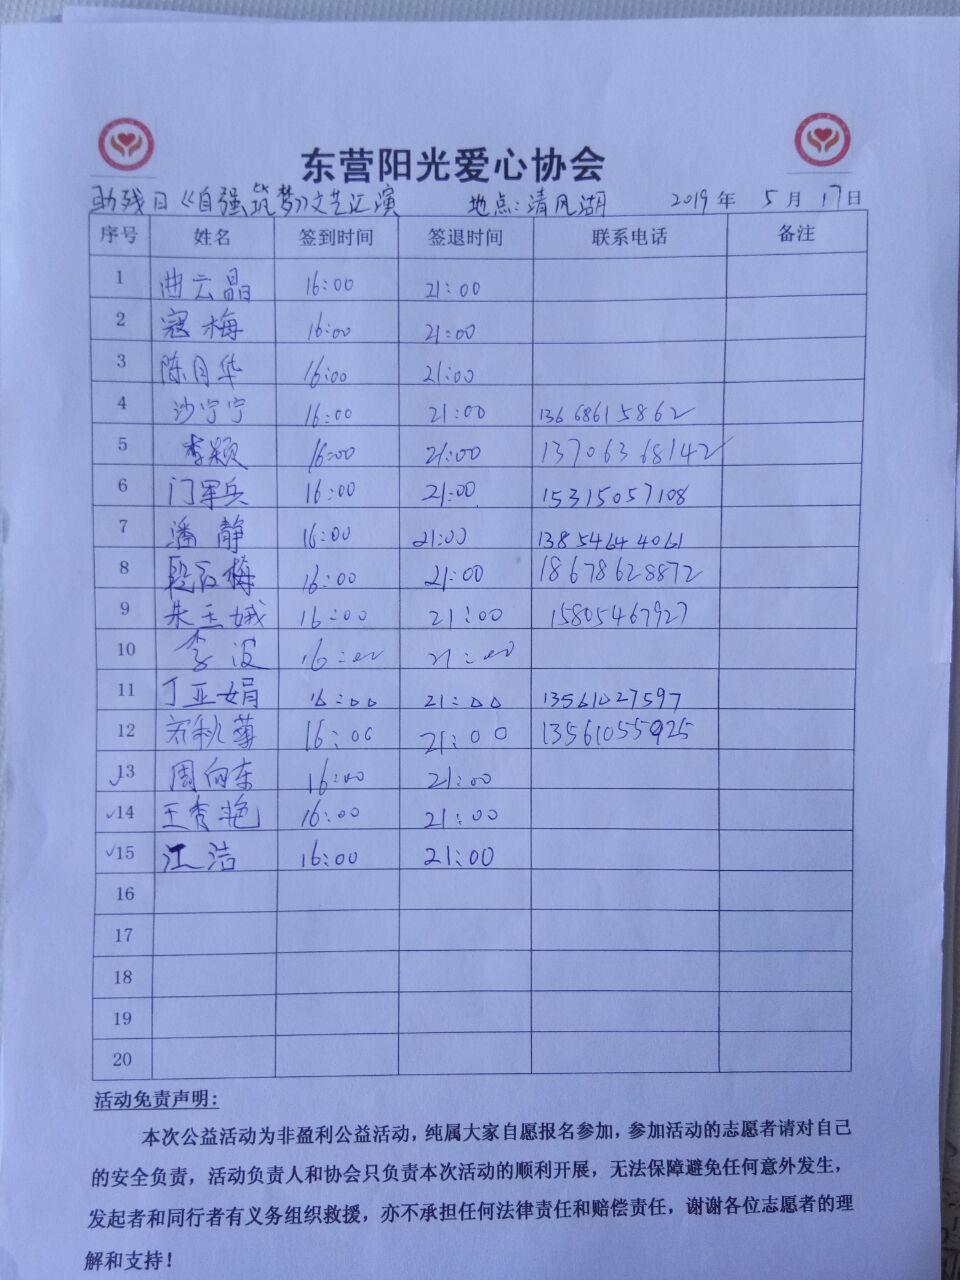 东营阳光爱心协会
助残日《自强筑梦》文艺汇演 地点:清风湖 2019年 5月 17日
序号 姓名 签到时间 签退时间 联系电话 备注
1 曲云晶 16:00 21:00
2 寇梅 16:00 21:00
3 陈月华 16:00 21:00
4 沙宁宁 16:00 21:00 13668615862
5 李颖 16:00 21:00 13706368142
6 门军兵 16:00 21:00 15315057108
7 潘静 16:00 21:00 13854644061
8 段红梅 16:00 21:00 18678628872
9 朱玉娥 16:00 21:00 15805467927
10 李波 16:00 21:00
11 丁亚娟 16:00 21:00 13561027597
12 16:00 21:00 13561055925
13 周向东 16:00 21:00
14 王秀艳 16:00 21:00
15 江洁 16:00 21:00
16
17
18
19
20
活动免责声明:
本次公益活动为非盈利公益活动,纯属大家自愿报名参加,参加活动的志愿者请对自己
的安全负责,活动负责人和协会只负责本次活动的顺利开展,无法保障避免任何意外发生,
发起者和同行者有义务组织救援,亦不承担任何法律责任和赔偿责任,谢谢各位志愿者的理
解和支持!